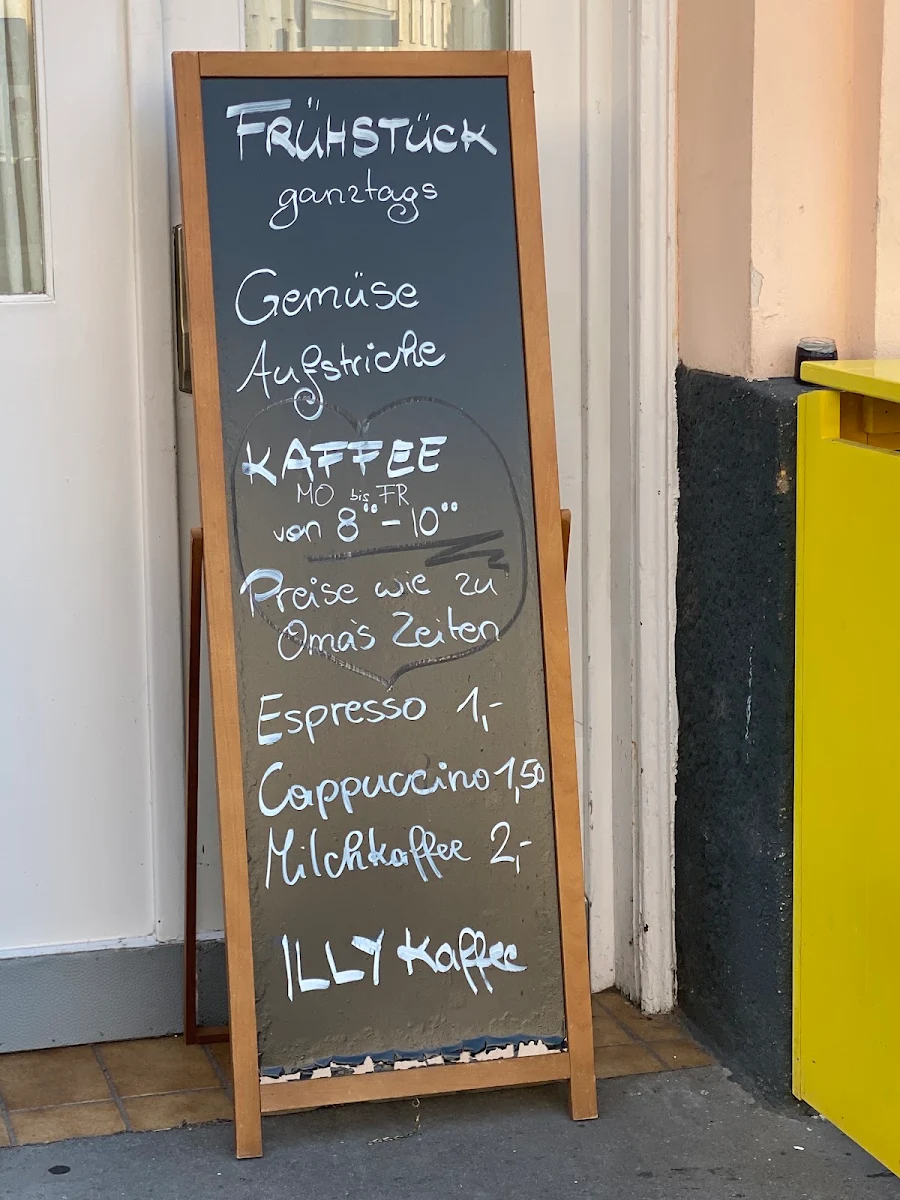 FRÜHSTÜCK
ganztags
Gemüse
Aufstriche
KAFFEE
MO bis FR
von 8°° - 10°°
Preise wie zu
Oma's Zeiten
Espresso 1,-
Cappuccino 1,50
Milchkaffee 2,-
ILLY Kaffee